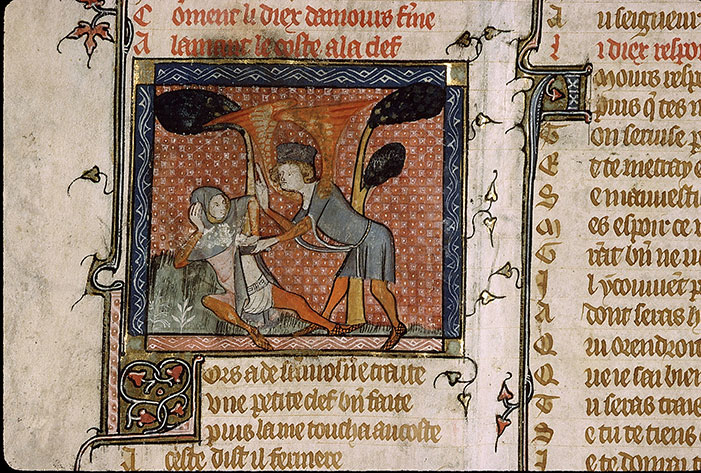 Coment li diex damours fine
A lamant le coste a la clef
ors a de laumosn͛e traite
vne petite clef bn̄ faite
puis la me toucha au coste
I ceste dist il fermere
A u seigneur
L i diex respon
Amours resp
puis q̄ tes
on seruise p
E te metray e
e mauuesti
es espoir ce
bn̄ ne
l y couuent p
dont seras
orendroit
ne ie sai bien
u seras
e tu te tiens